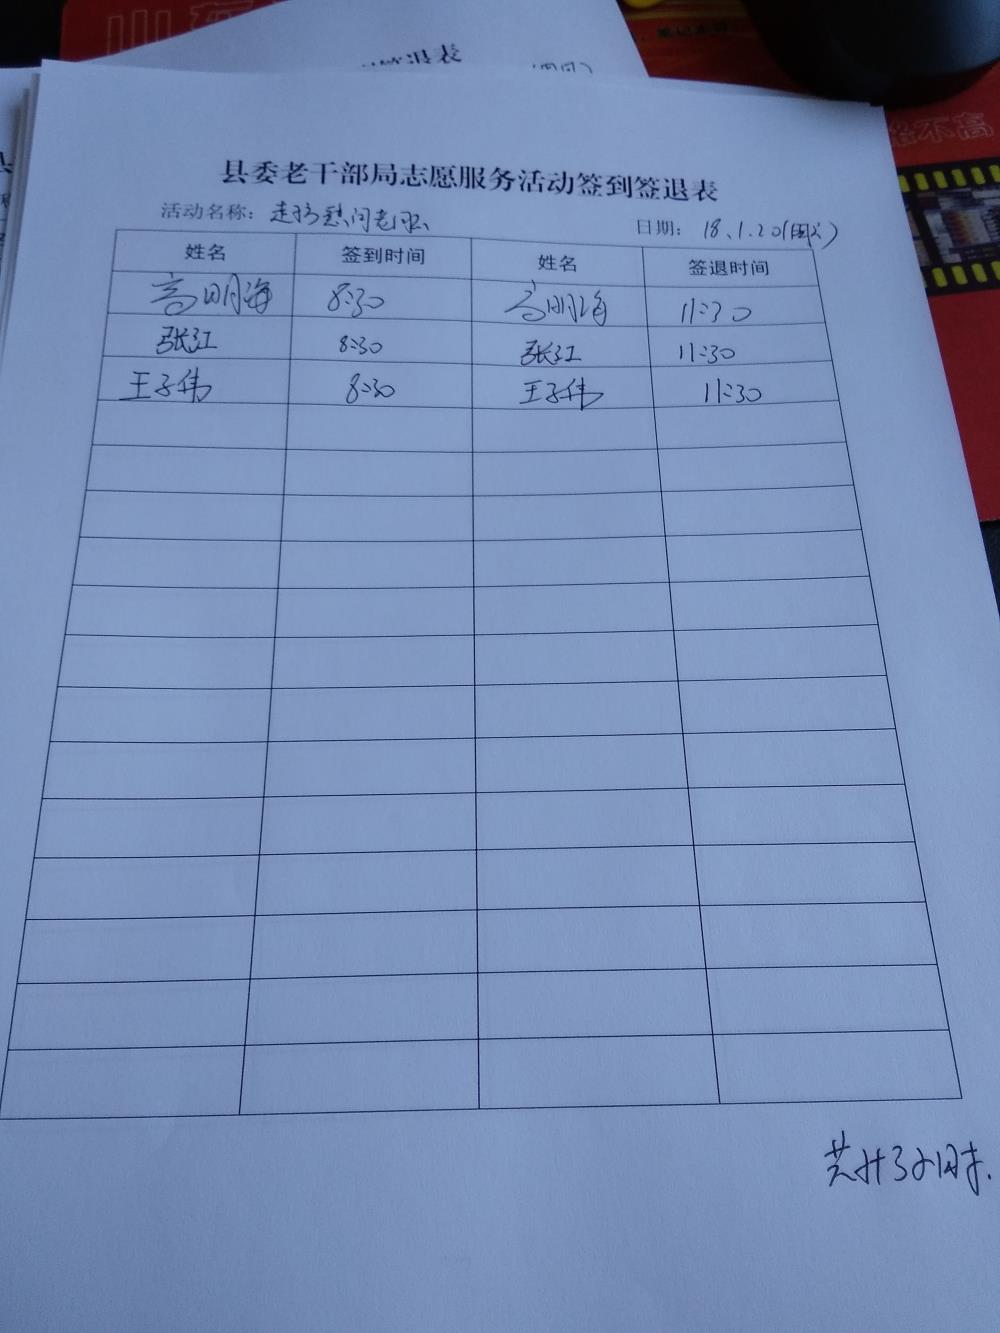 签退表
县委老干部局志愿服务活动签到签退表
活动名称：走访慰问老干部
日期：18.1.20(周六)
姓名 签到时间 姓名 签退时间
高明海 8:30 高明海 11:30
张江 8:30 张江 11:30
王子伟 8:30 王子伟 11:30
共计3小时